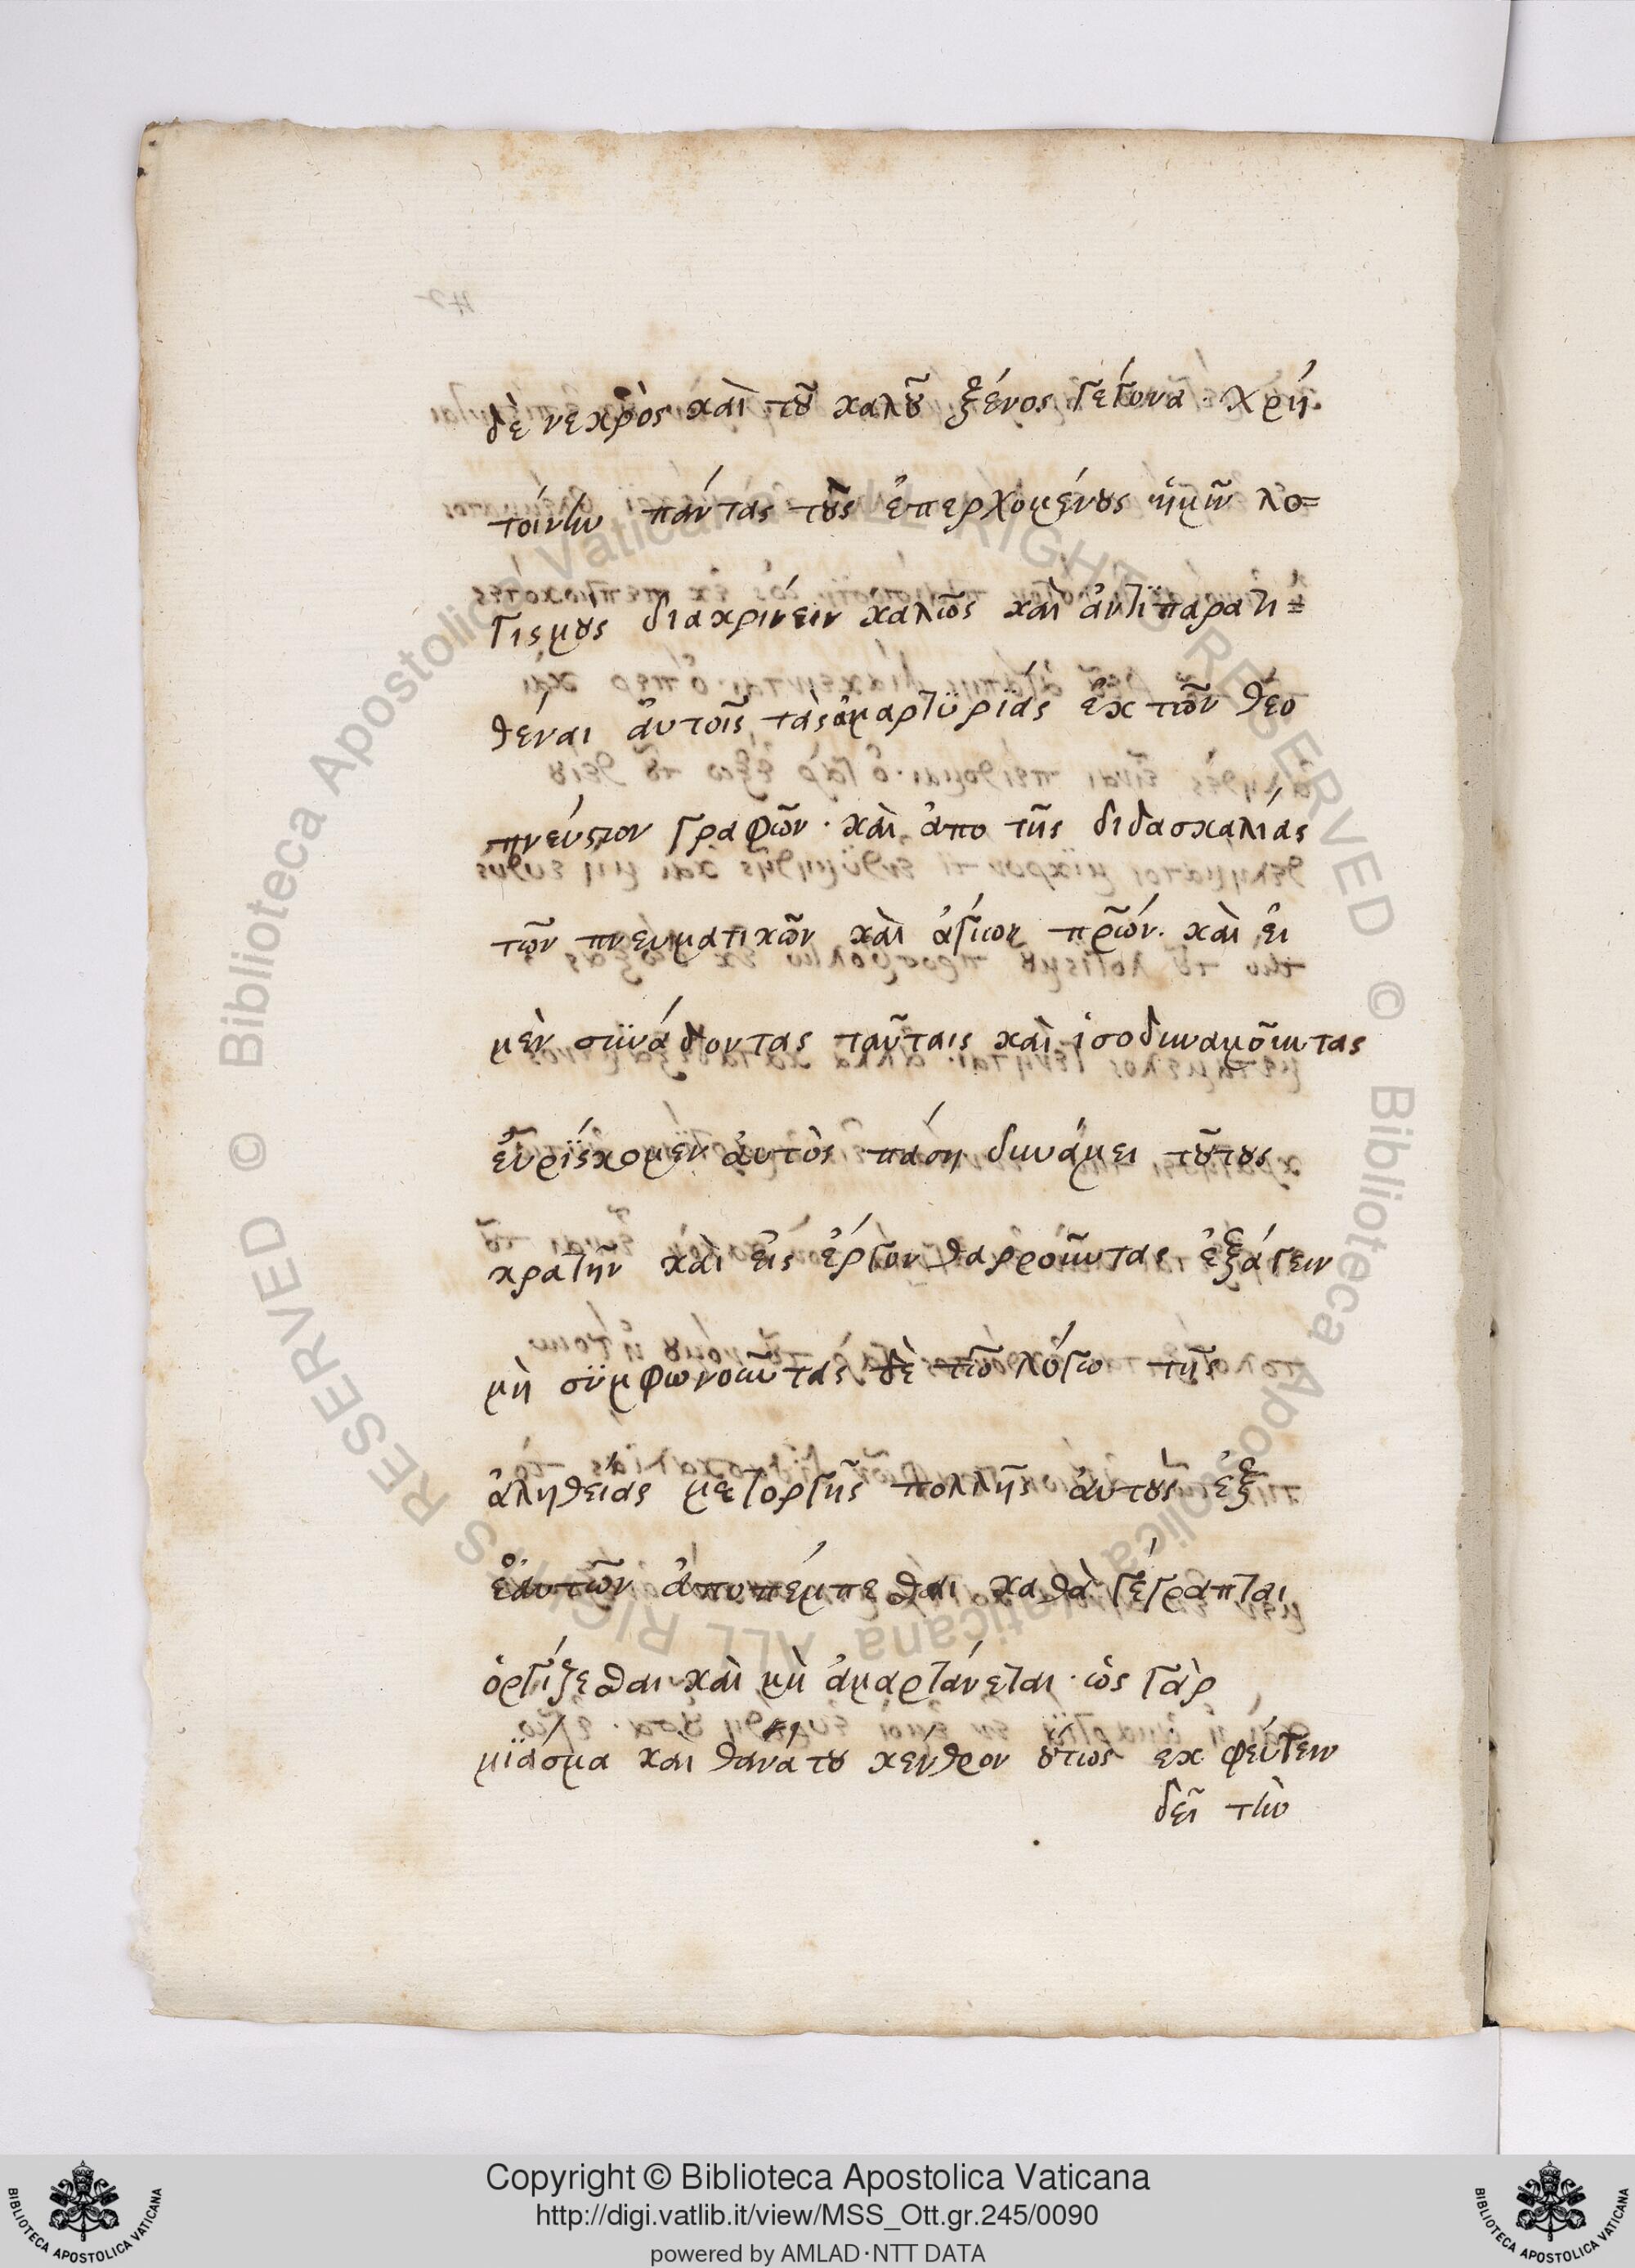 δὲ νεκρὸς καὶ τοῦ καλοῦ ξένος γέγονα· χρή
τοίνυν πάντας τοὺς ἐπερχομένους ἡμῖν λο=
γισμοὺς διακρίνειν καλῶς καὶ ἀντϊπαρατι=
θέναι ἀυτοῖς τὰς μαρτϋρϊάς ἐκ τῶν θεο
πνεύστον γραφῶν· καὶ ἀπο τῆς διδασκαλίας
τῶν πνευματικῶν καὶ ἁγίων πρ̃ων. καὶ ἐι
μὲν σϋνάδοντας ταῦταις καὶ ἰσοδυναμοῦντας
εὑρΐσκομεν ἀυτὸς πάση δυνάμει τούτους
κρατῆν καὶ ἐις ἔργον θαρροῦντας ἐξάγειν
μὴ σϋμφωνοῦντας δὲ τῶ λόγω τῆς
ἀληθείας μετοργῆς πολλῆς ἀυτοὺς ἐξ
ἑαυτῶν ἀποπέμπεσθαι καθὰ γέγραπται
ὀργίζεσθαι καὶ μὴ ἁμαρτάνεται· ὡς γὰρ
μΐασμα καὶ θανάτου κένθρον οὕτως εκ φεύγειν
δεῖ τὴν
Copyright © Biblioteca Apostolica Vaticana
http://digi.vatlib.it/view/MSS_Ott.gr.245/0090
powered by AMLAD·NTT DATA
BIBLIOTECA APOSTOLICA VATICANA
BIBLIOTECA APOSTOLICA VATICANA
© Biblioteca Apostolica Vaticana ALL RIGHTS RESERVED
© Biblioteca Apostolica Vaticana ALL RIGHTS RESERVED